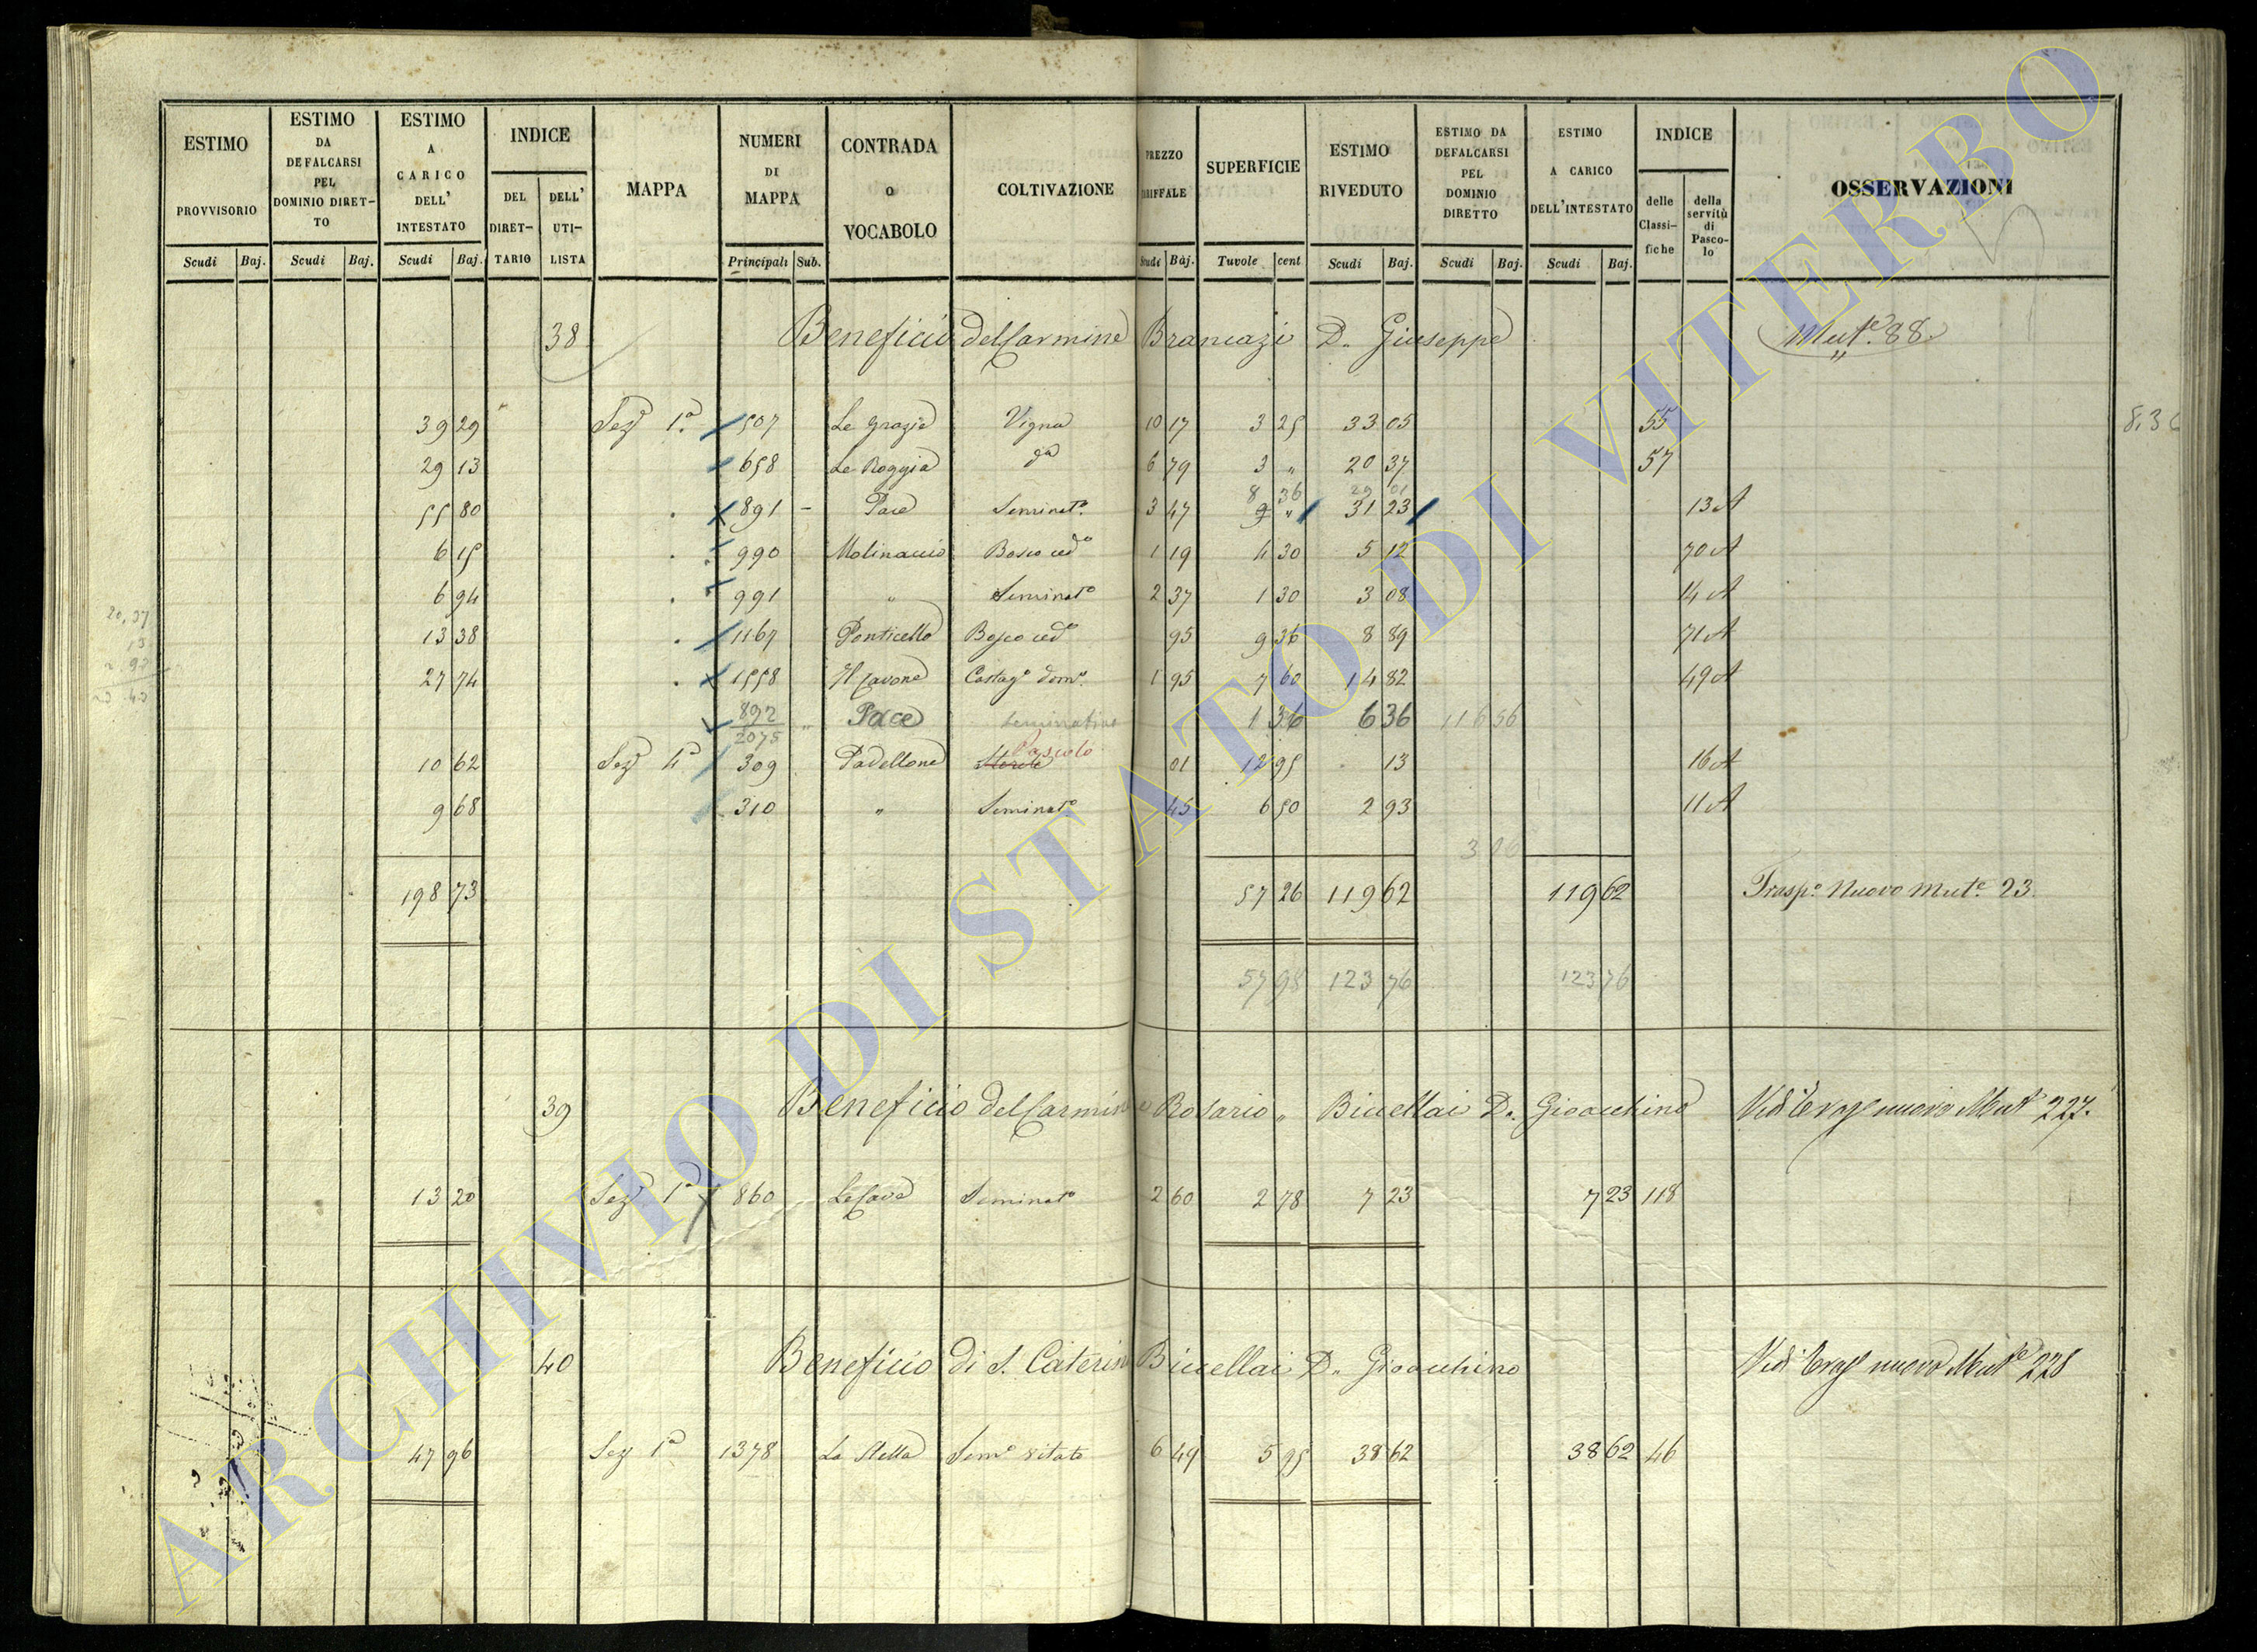 ESTIMO PROVVISORIO
ESTIMO DA DEFALCARSI PEL DOMINIO DIRET-TO
ESTIMO A CARICO DELL' INTESTATO
INDICE
DEL DIRET-TARIO
DELL' UTI-LISTA
MAPPA
NUMERI DI MAPPA
CONTRADA o VOCABOLO
COLTIVAZIONE
PREZZO
SUPERFICIE
ESTIMO RIVEDUTO
ESTIMO DA DEFALCARSI PEL DOMINIO DIRETTO
ESTIMO A CARICO DELL'INTESTATO
INDICE
delle Classi-fiche
della servitù di Pasco-lo
OSSERVAZIONI
Scudi Baj. Scudi Baj. Scudi Baj. Principali Sub. Scudi Baj. Tavole cent Scudi Baj. Scudi Baj. Scudi Baj.
38 Beneficio del Carmine Brancazi D. Giuseppe Mut.e 88.
39 29 Sez.e 1.a 507 Le Grazie Vigna 10 17 3 25 33 05 55
29 13 658 Le Roggie d.a 6 79 3 " 20 37 57
8 36 29 01
55 80 891 - Pace Seminat.o 3 47 9 " 31 23 13 A
6 15 990 Molinaccio Bosco ced.o 1 19 4 30 5 12 70 A
6 94 991 " Seminat.o 2 37 1 30 3 08 14 A
13 38 1167 Ponticello Bosco ced.o 95 9 36 8 89 71 A
27 74 1558 Il Cavone Castag.o dom.o 1 95 7 60 14 82 49 A
892/2075 " Pace Seminativo 1 36 6 36 116 56
Pascolo
10 62 Sez.e 4.a 309 Padellone Sterile 01 12 95 13 16 A
9 68 310 " Seminat.o 45 6 50 2 93 11 A
198 73 57 26 119 62 119 62 Trasp.o Nuovo Mut.e 23.
57 98 123 76 123 76
39 Beneficio del Carmine e Rosario " Bucellai D. Gioacchino Vedi Trasp nuovo Mut 227.
13 20 Sez.e 1.a 860 Le Cave Seminat.o 2 60 2 78 7 23 7 23 118
40 Beneficio di S. Caterina Bucellai D. Gioacchino Vedi Trasp nuovo Mut.e 228
47 96 Sez 1.a 1378 La Stella Sem.o vitato 6 49 5 95 38 62 38 62 46
8,36
20,37
ARCHIVIO DI STATO DI VITERBO